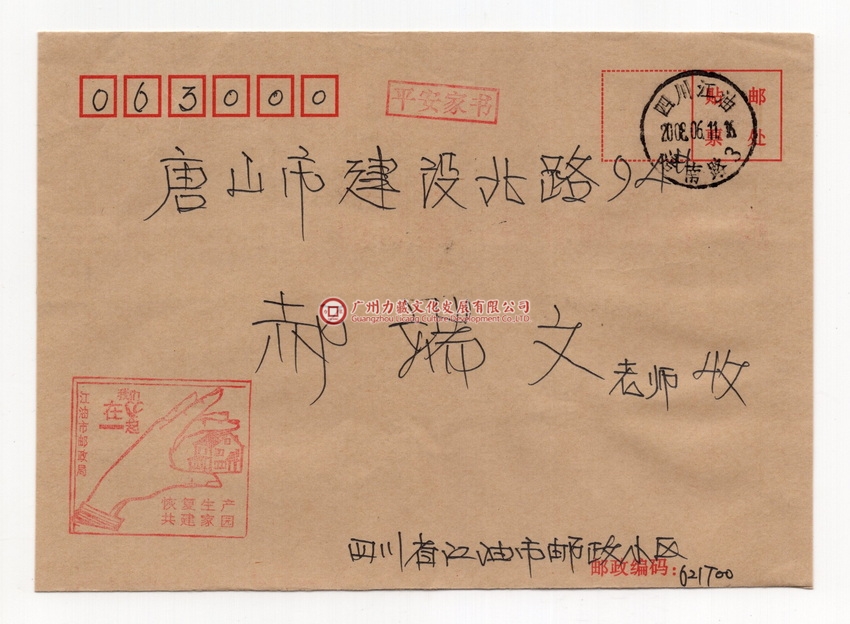 063000
平安家书
贴 邮
票 处
四川江油
2008.06.11.16
南路3
唐山市建设北路94
广州力藏文化发展有限公司
Guangzhou Licang Cultural Development Co.,LTD.
郝瑞文老师收
江油市邮政局
我们
在一起
恢复生产
共建家园
四川省江油市邮政小区
邮政编码:621700